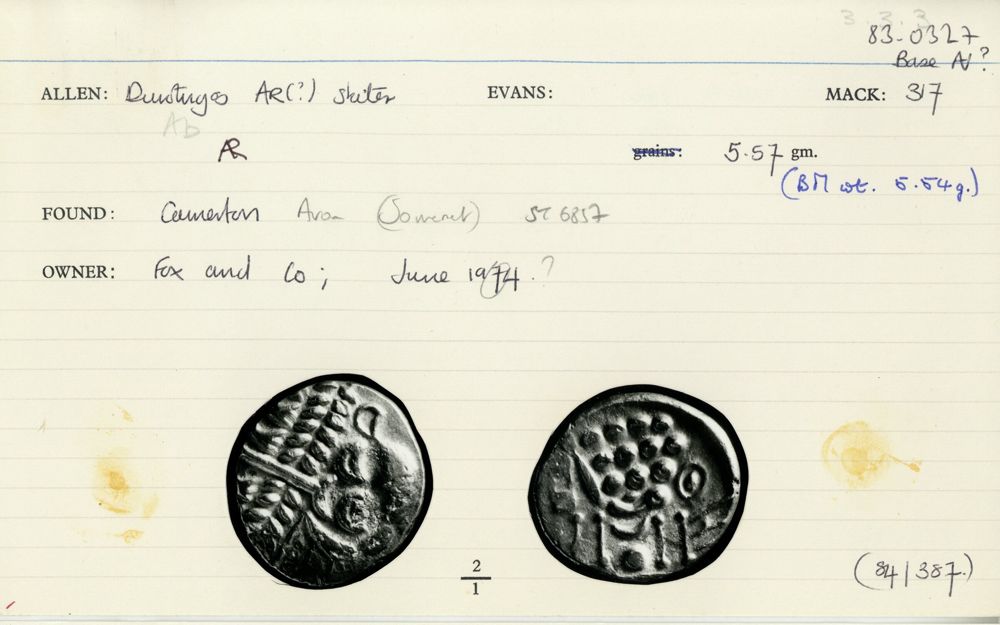 3 3 3
83-0327
Base AV?
ALLEN: Durotriges AR(?) stater EVANS: MACK: 317
Ab
AR
grains: 5.57 gm.
(BM wt. 5.54g.)
FOUND: Camerton Avon (Somerset) ST 6857
OWNER: Fox and Co; June 1974.?
2
1
(84/387.)